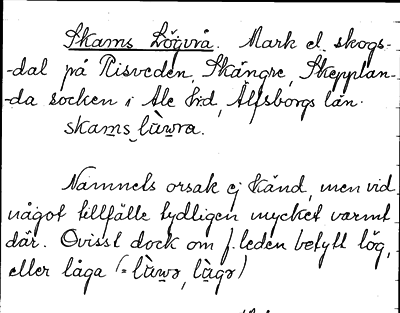 Skams Lögvrå. Mark el. skogs-
-dal på Risveden, Skångre, Skepplan-
-da socken i Ale hd, Älfsborgs län.
skams lùwra.
Namnets orsak ej känd, men vid
något tillfälle tydligen mycket varmt
där. Ovisst dock om f. leden betytt lög,
eller låga (= lùwə, lùgə)